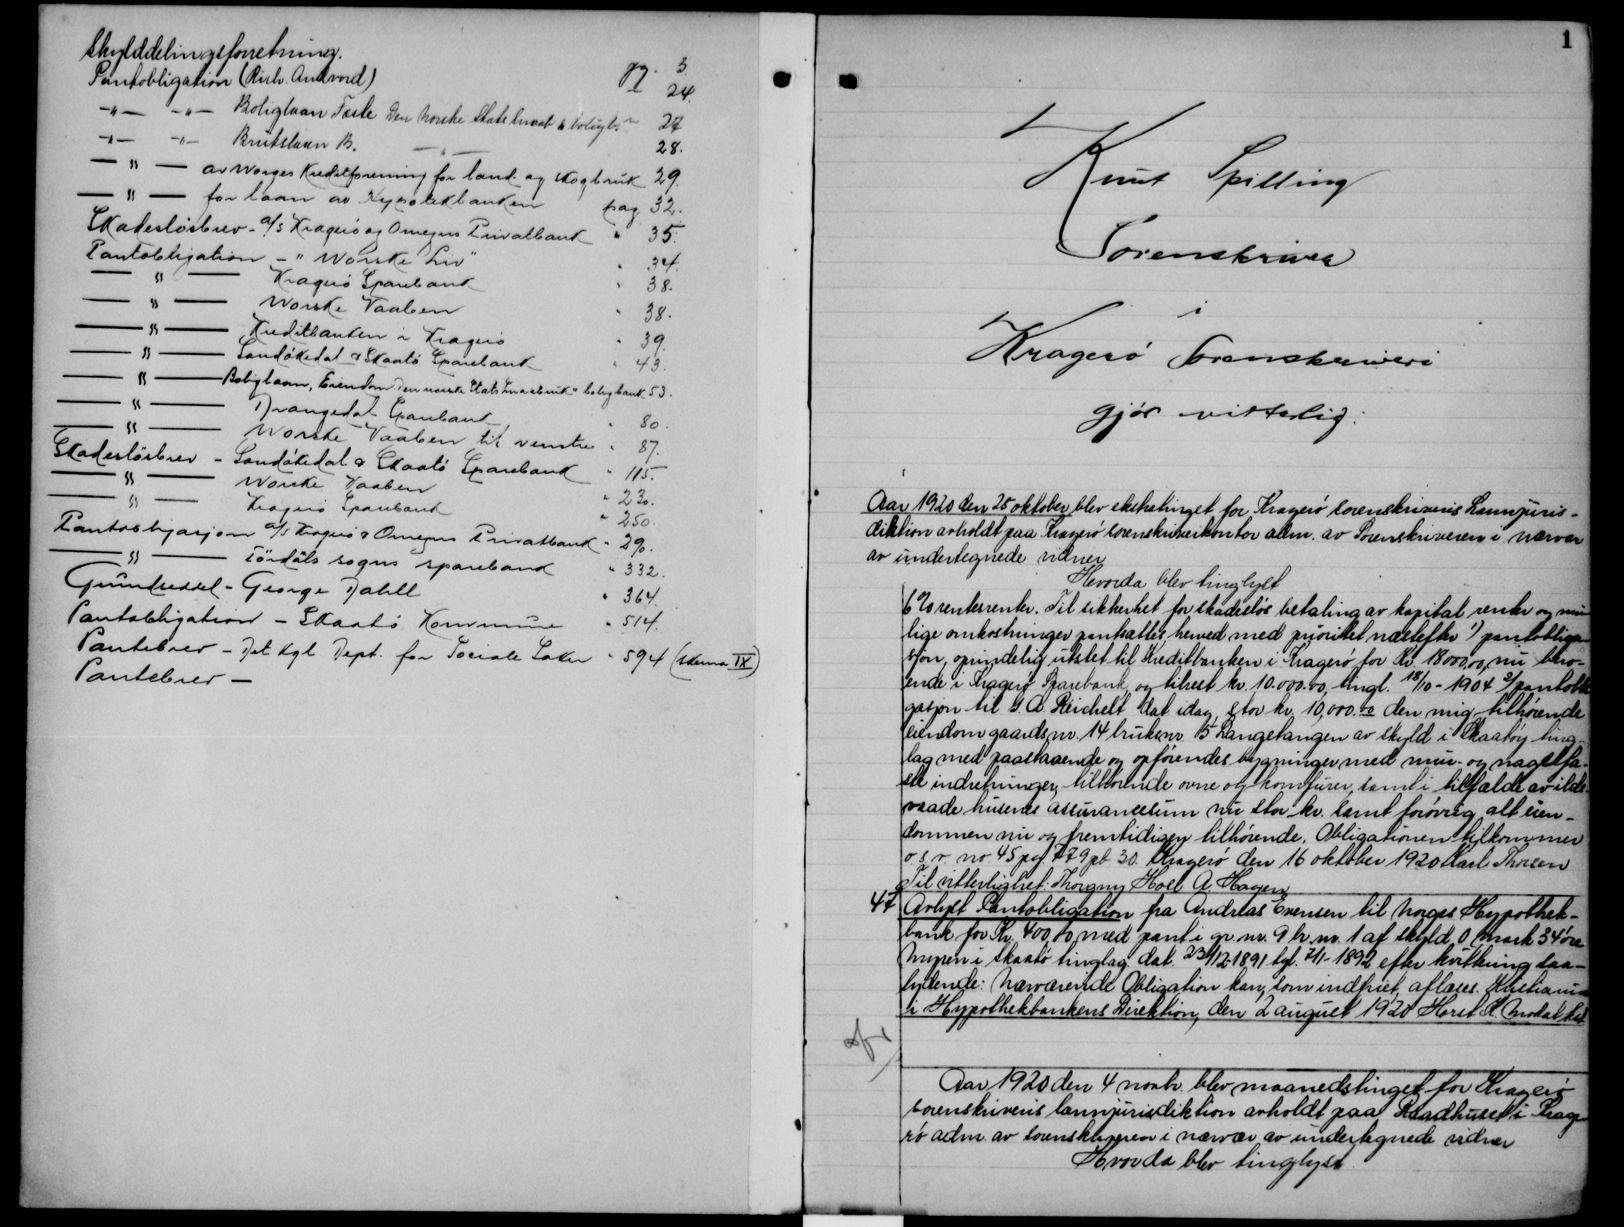 Skylddelingsforretning. pg. 3
Pantobligation (Rich. Andvord) 24.
-"- -"- Boliglaan Feste Den norske Stats småbr. & boligb. 27
-"- -"- Brukslaan B. -"- 28.
-"- av Norges Kreditforening for land og skogbruk 29.
-"- for laan av Hypotekbanken pag 32.
Skadeslösbrev - a/s Kragerö og Omegns Privatbank " 35.
Pantobligation - "Norske Liv" " 37.
-"- Kragerö Sparebank " 38.
-"- Norske Vaaben " 38.
-"- Kreditbanken i Kragerö " 39.
-"- Sandökedal & Skaatö Sparebank " 43.
-"- Boliglaan, Eiendom Den norske Stats Småbruk & boligbank 53.
-"- Drangedal Sparebank " 80.
-"- Norske Vaaben til venstre " 87.
Skadeslösbrev - Sandökedal & Skaatö Sparebank " 115.
-"- Norske Vaaben " 230.
-"- Kragerö Sparebank " 250.
Pantobligasjon a/s Kragerö & Omegns Privatbank " 290.
-"- Tördals sogns sparebank " 332.
Grundseddel - George Dahll " 364.
Pantobligation - Skaatö Kommune " 514.
Pantebrev - Det Kgl Dept. for Sociale Saker " 594 (skema IX)
Pantebrev -
1
Knut Spilling
Sorenskriver
i
Kragerö Sorenskriveri
gjör vitterlig:
Aar 1920 den 25 oktober blev ekstratinget for Kragerö sorenskriveris Lannjuris-
diktion avholdt paa Kragerö sorenskriverkontor adm. av Sorenskriveren i nærvær
av undertegnede vidner
Hvorda blev tinglyst
6% rentesrenter. Til sikkerhet for skadeslös betaling av kapital renter og mu-
lige omkostninger pantsættes herved med prioritet næstefter 1) pantobliga-
sjon, oprindelig utstet til Kreditbanken i Kragerö for Kr. 18000,00, nu bero-
ende i Kragerö Sparebank, og tilrest kr. 10.000.00, tingl. 18/10-1904 2/ pantobli
gasjon til J. A. Reichelt dat idag, stor kr. 10,000.00 den mig tilhörende
eiendom gaardsnr. 14 bruksnr. 15 Langetangen av skyld i Skaatöy ting-
lag med paastaaende og opförendes bygninger med mur- og nagelfa-
ste indretninger, tilhörende ovne og komfurer, samt i tilfælde av ilds-
vaade husenes assurancesum nu stor kr. samt forövrig alt eien-
dommen nu og fremtidigen tilhörende. Obligationen tilkommer
o.s.v. nr. 45 pag. 779 pb 30. Kragerö den 16 oktober 1920 Karl Thorsen
Til vitterlighet: Thorgny Holl A. Hagen
47 Avlyst Pantobligation fra Andreas Evensen til Norges Hypothek-
bank for Kr. 400,00, med pant i gr. nr. 9 br. nr. 1 af skyld 0 mark 34 öre
Myren i Skaatö tinglag dat. 23/12-1891 tgl. 7/1-1892 efter kvittering saa-
lydende: Nærværende Obligation kan, som indfriet, aflæses. Kristiania
i Hypothekbankens Direktion, den 2 august 1920
Aar 1920 den 4 novbr. blev maanedstinget for Kragerö
sorenskriveris lannjurisdiktion avholdt paa Raadhuset i Krage-
rö adm. av sorenskriveren i nærvær av undertegnede vidner
Hvorda blev tinglyst